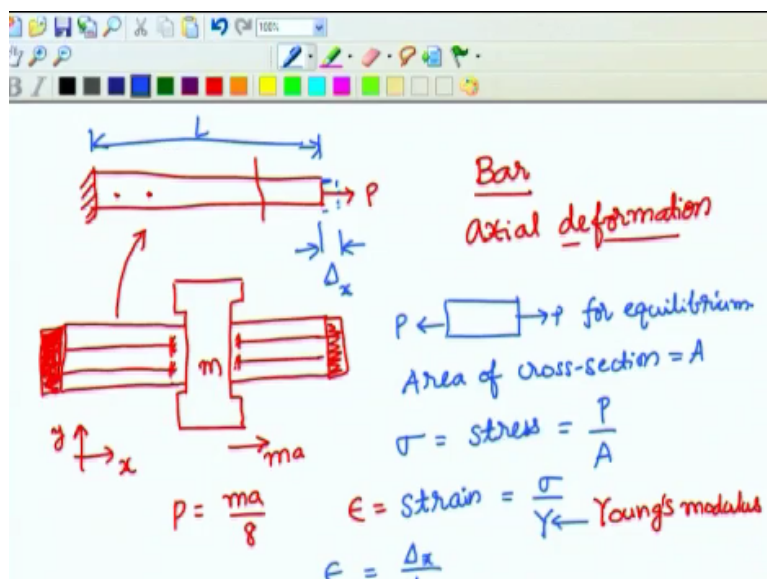 100%
B I
L
P
Δx
Bar
axial deformation
P P for equilibrium.
Area of cross-section = A
σ = stress = P/A
m
y
x
ma
P = ma/8
ϵ = strain = σ/Y ← Young's modulus
ϵ = Δx